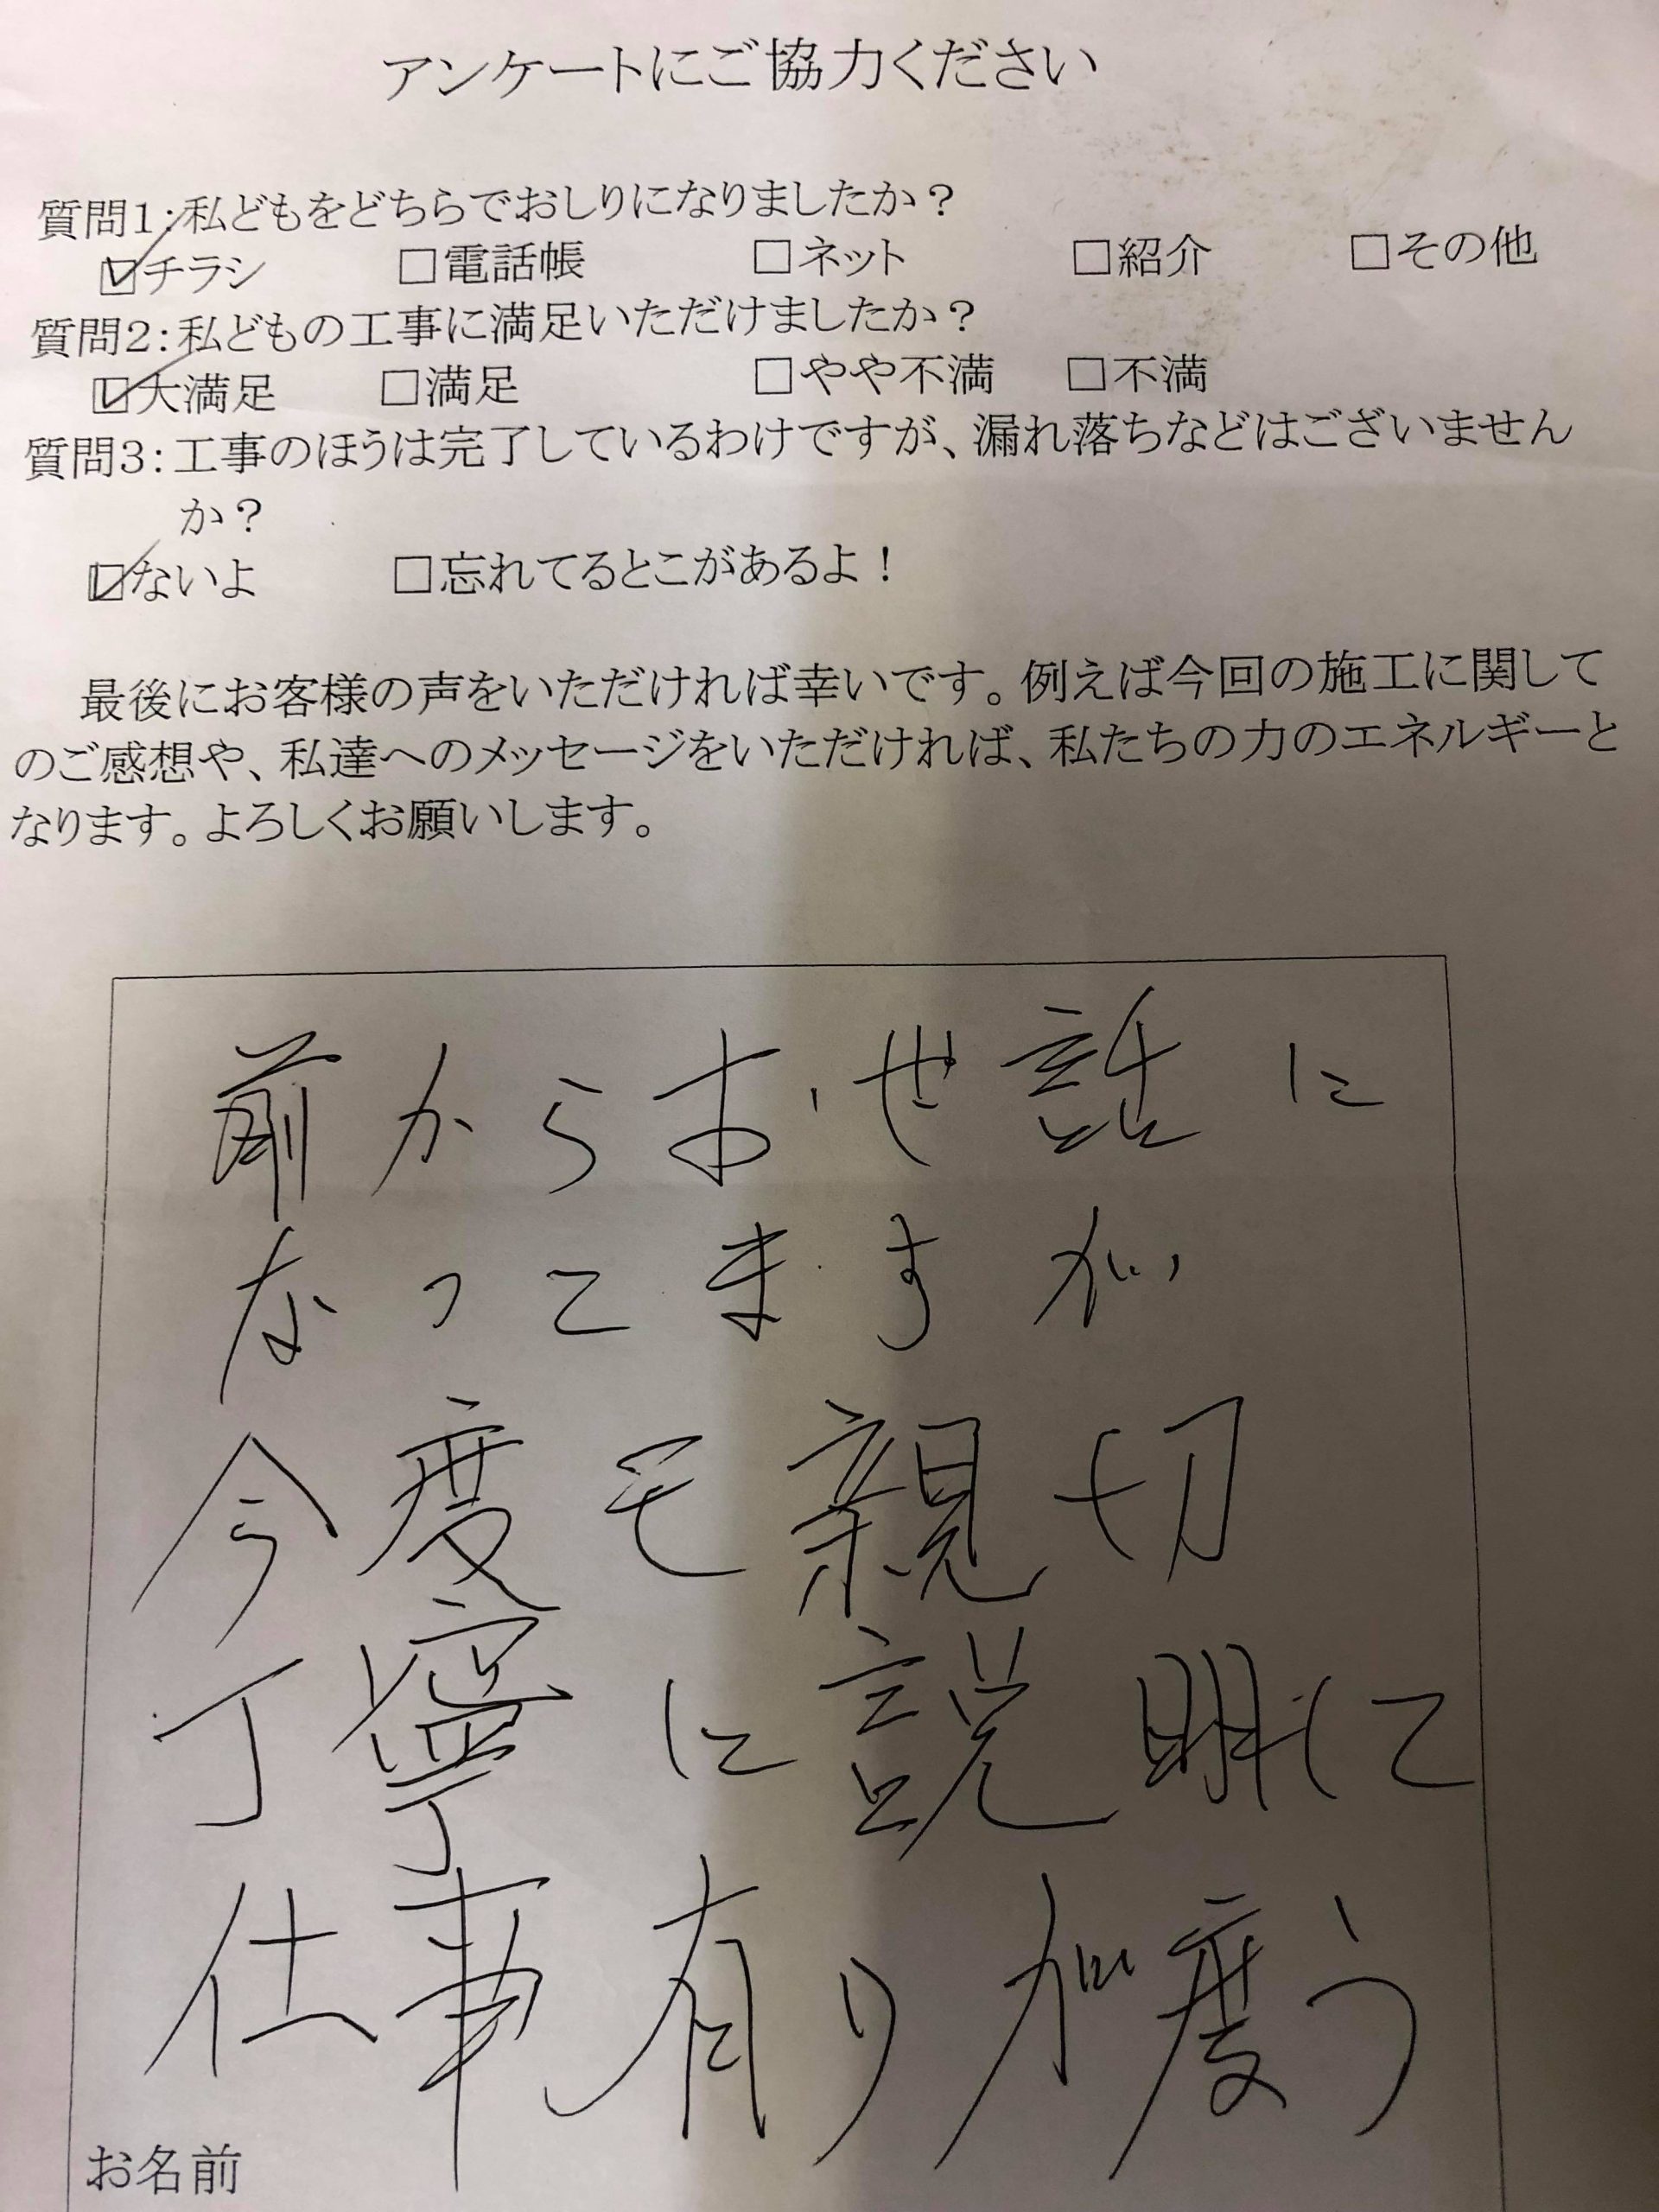 アンケートにご協力ください
質問1:私どもをどちらでおしりになりましたか？
☑チラシ □電話帳 □ネット □紹介 □その他
質問2:私どもの工事に満足いただけましたか？
☑大満足 □満足 □やや不満 □不満
質問3:工事のほうは完了しているわけですが、漏れ落ちなどはございません
か？
☑ないよ □忘れてるとこがあるよ！
最後にお客様の声をいただければ幸いです。例えば今回の施工に関して
のご感想や、私達へのメッセージをいただければ、私たちの力のエネルギーと
なります。よろしくお願いします。
前からお世話に
なってますが
今度も親切
丁寧に説明して
仕事有りが度う
お名前